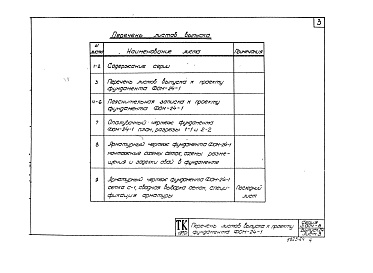 3
Перечень листов выпуска
№ листа
Наименование листа
Примечания
1-2
Содержание серии
3
Перечень листов выпуска к проекту
фундамента ФОН-24-1
4-6
Пояснительная записка к проекту
фундамента ФОН-24-1
7
Опалубочный чертеж фундамента
ФОН-24-1 план, разрезы 1-1 и 2-2
8
Арматурный чертеж фундамента ФОН-24-1
монтажные схемы сеток, схемы разме-
щения и вязки свай в фундаменте
9
Арматурный чертеж фундамента ФОН-24-1
сетка С-1, сводная выборка сеток, специ-
фикация арматуры
Последний
лист
ТК
Перечень листов выпуска к проекту
фундамента ФОН-24-1
Серия